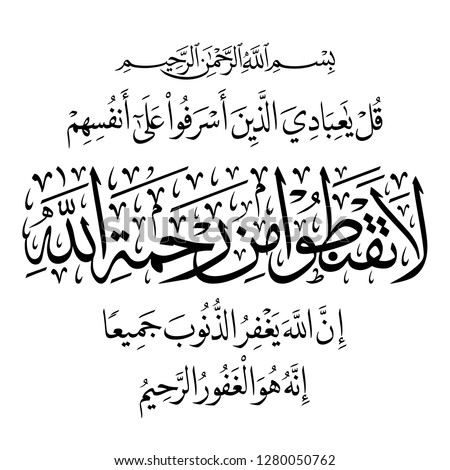 بِسْمِ اللَّهِ الرَّحْمَٰنِ الرَّحِيمِ
قُلْ يَٰعِبَادِيَ الَّذِينَ أَسْرَفُوا۟ عَلَىٰٓ أَنفُسِهِمْ
لَا تَقْنَطُوا۟ مِن رَّحْمَةِ اللَّهِ
إِنَّ اللَّهَ يَغْفِرُ الذُّنُوبَ جَمِيعًا
إِنَّهُۥ هُوَ الْغَفُورُ الرَّحِيمُ
shutterstock.com • 1280050762